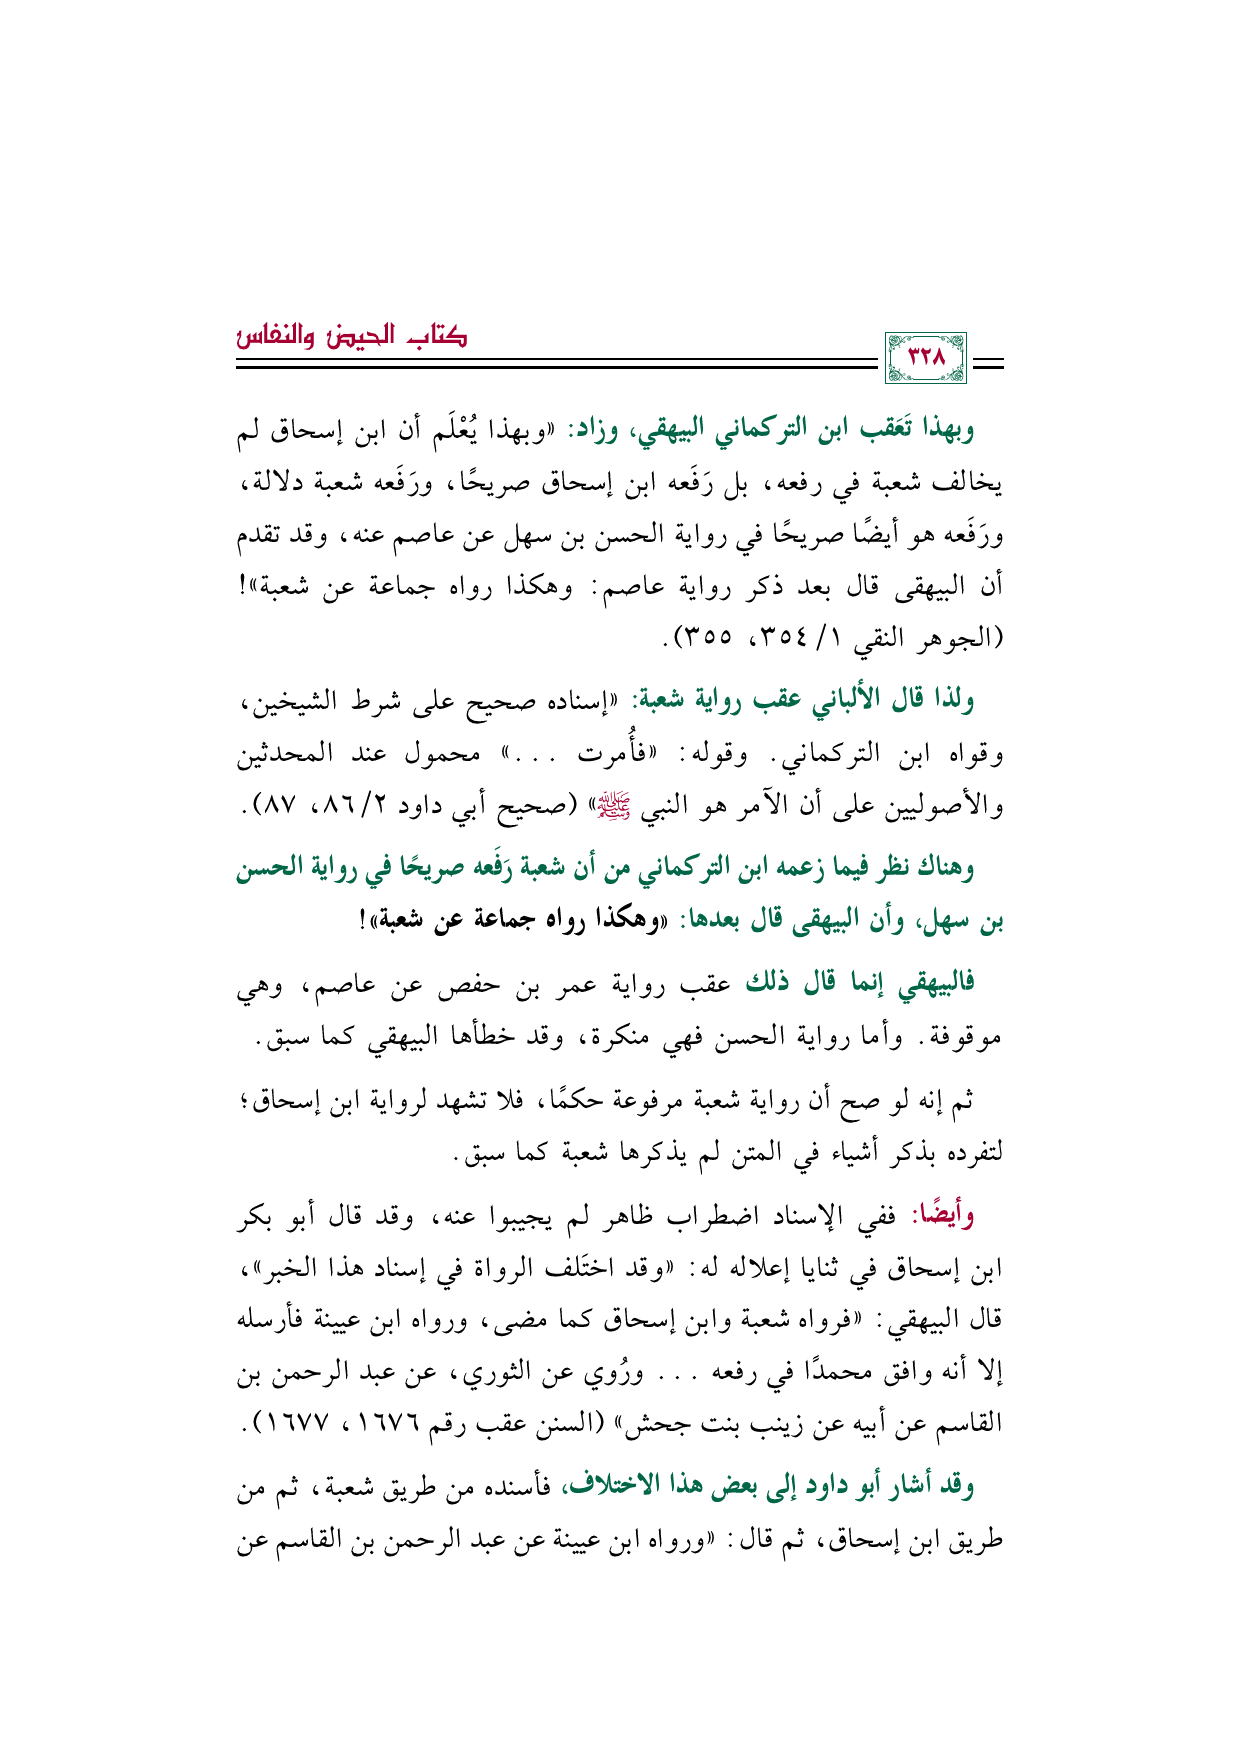 كتاب الحيض والنفاس
٣٢٨
وبهذا تَعَقب ابن التركماني البيهقي، وزاد: «وبهذا يُعْلَم أن ابن إسحاق لم
يخالف شعبة في رفعه، بل رَفَعه ابن إسحاق صريحًا، ورَفَعه شعبة دلالة،
ورَفَعه هو أيضًا صريحًا في رواية الحسن بن سهل عن عاصم عنه، وقد تقدم
أن البيهقى قال بعد ذكر رواية عاصم: وهكذا رواه جماعة عن شعبة»!
(الجوهر النقي ١/ ٣٥٤، ٣٥٥).
ولذا قال الألباني عقب رواية شعبة: «إسناده صحيح على شرط الشيخين،
وقواه ابن التركماني. وقوله: «فأُمرت ...» محمول عند المحدثين
والأصوليين على أن الآمر هو النبي ﷺ» (صحيح أبي داود ٢/ ٨٦، ٨٧).
وهناك نظر فيما زعمه ابن التركماني من أن شعبة رَفَعه صريحًا في رواية الحسن
بن سهل، وأن البيهقى قال بعدها: «وهكذا رواه جماعة عن شعبة»!
فالبيهقي إنما قال ذلك عقب رواية عمر بن حفص عن عاصم، وهي
موقوفة. وأما رواية الحسن فهي منكرة، وقد خطأها البيهقي كما سبق.
ثم إنه لو صح أن رواية شعبة مرفوعة حكمًا، فلا تشهد لرواية ابن إسحاق؛
لتفرده بذكر أشياء في المتن لم يذكرها شعبة كما سبق.
وأيضًا: ففي الإسناد اضطراب ظاهر لم يجيبوا عنه، وقد قال أبو بكر
ابن إسحاق في ثنايا إعلاله له: «وقد اختَلف الرواة في إسناد هذا الخبر»،
قال البيهقي: «فرواه شعبة وابن إسحاق كما مضى، ورواه ابن عيينة فأرسله
إلا أنه وافق محمدًا في رفعه ... ورُوي عن الثوري، عن عبد الرحمن بن
القاسم عن أبيه عن زينب بنت جحش» (السنن عقب رقم ١٦٧٦، ١٦٧٧).
وقد أشار أبو داود إلى بعض هذا الاختلاف، فأسنده من طريق شعبة، ثم من
طريق ابن إسحاق، ثم قال: «ورواه ابن عيينة عن عبد الرحمن بن القاسم عن